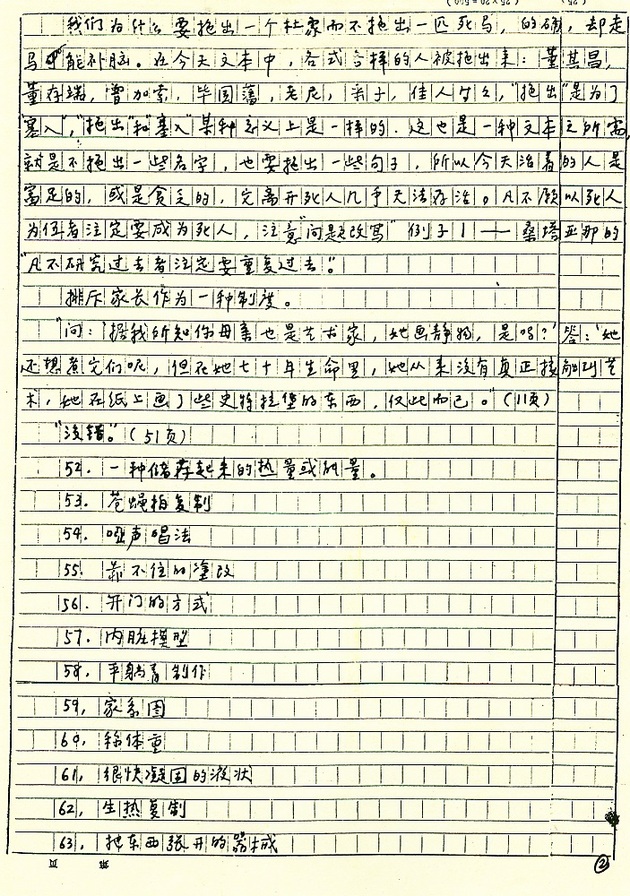 我们为什么要抱出一个杜象而不抱出一匹死马，的确，却走
马可能补脑。在今天文本中，各式各样的人被抱出来：董其昌，
董存瑞，曾加索，毕国藩，老尼，弟子，佳人 "抱出"是为了
"塞入"，"抱出"和"塞入"某种意义上是一样的．这也是一种文本之所需，
就是不抱出一些名字，也要抱出一些句子，所以今天活着的人是
富足的，或是贪乏的，完离开死人几乎无法存活。凡不愿以死人
为伍者注定要成为死人，注意"问题改写"例子1——桑塔亚那的
"凡不研究过去者注定要重复过去。"
排斥家长作为一种制度。
"问：'据我所知你母亲也是艺术家，她画静物，是吗？'答：'她
还想着它们呢，但在她七十年生命里，她从来没有真正接触到艺
术，她在纸上画了些史特拉堡的东西，仅此而已。"（11页）
"没错。"（51页）
52．一种储存起来的热量或能量。
53．苍蝇拍复制
54．哑声唱法
55．靠不住的涂改
56．开门的方式
57．内脏模型
58．平躺着制作
59，家系图
60，称体重
61，很快凝固的液状
62，生热复制
63，把东西张开的器械
②